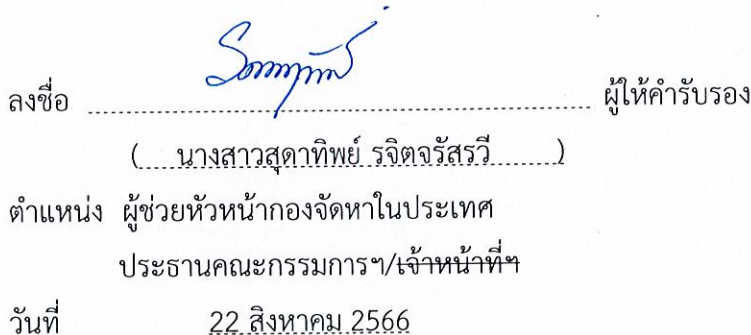 ลงชื่อ ผู้ให้คำรับรอง
( นางสาวสุดาทิพย์ รจิตจรัสรวี )
ตำแหน่ง ผู้ช่วยหัวหน้ากองจัดหาในประเทศ
ประธานคณะกรรมการฯ/เจ้าหน้าที่ฯ
วันที่ 22 สิงหาคม 2566